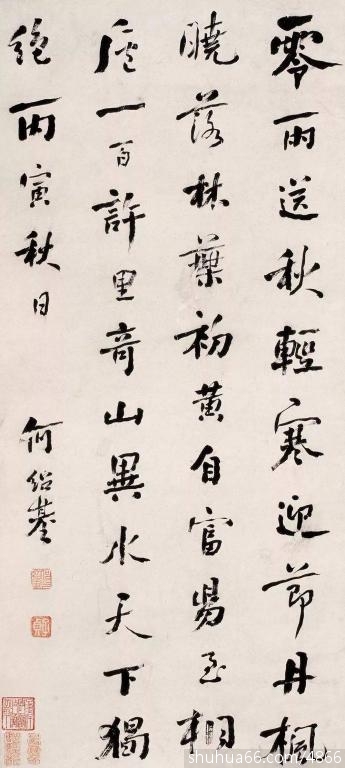 零雨送秋輕寒迎節丹楓
曉落林葉初黃自富昜至桐
廬一百許里奇山異水天下獨
絕丙寅秋日
何紹基
shuhua66.com/4866